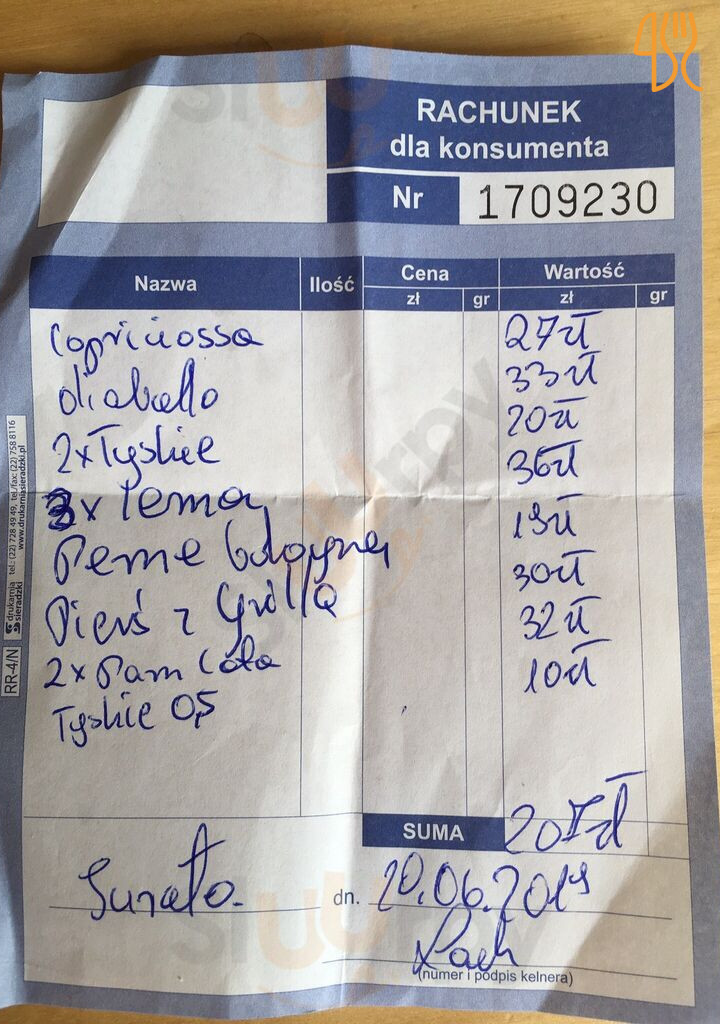 RACHUNEK
dla konsumenta
Nr 1709230
Nazwa Ilość Cena Wartość
zł gr zł gr
Copriciossa 27zł
diabello 33zł
2xTyskie 20zł
3x 36zł
Penne 19zł
Pierś z Grilla 30zł
2x Cola 32zł
Tyskie 0,5 10zł
SUMA 207zł
dn. 20.06.2019
(numer i podpis kelnera)
RR-4/N
drukarnia tel.: (22) 728 49 49, tel./fax: (22) 758 8116
sieradzki www.drukarniasieradzki.pl
sluurpy
sluurpy
sluurpy